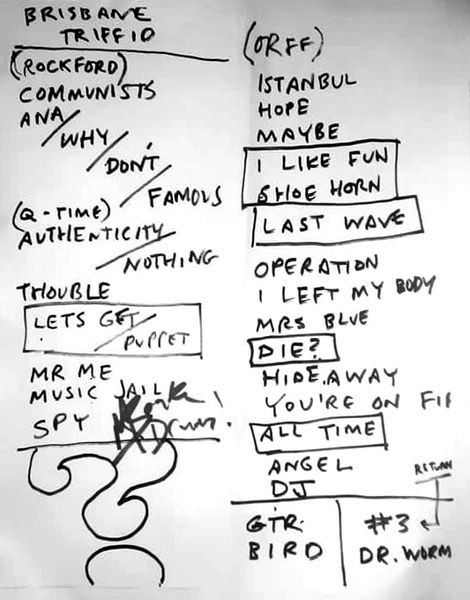 BRISBANE
TRIFFID
(ROCKFORD)
COMMUNISTS
ANA/
WHY/
DON'T/
FAMOUS
(Q-TIME)
AUTHENTICITY/
NOTHING
THOUBLE
LETS GET/
PUPPET
MR ME
MUSIC JAIL
SPY
(ORFF)
ISTANBUL
HOPE
MAYBE
I LIKE FUN
SHOE HORN
LAST WAVE
OPERATION
I LEFT MY BODY
MRS BLUE
DIE?
HIDE.AWAY
YOU'RE ON FI
ALL TIME
ANGEL
DJ
RETURN
GTR.
BIRD
#3
DR. WORM